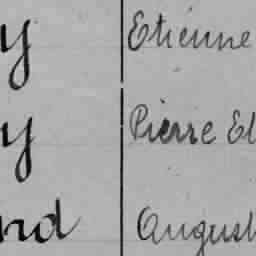 y Etienne
y Pierre El
nd August